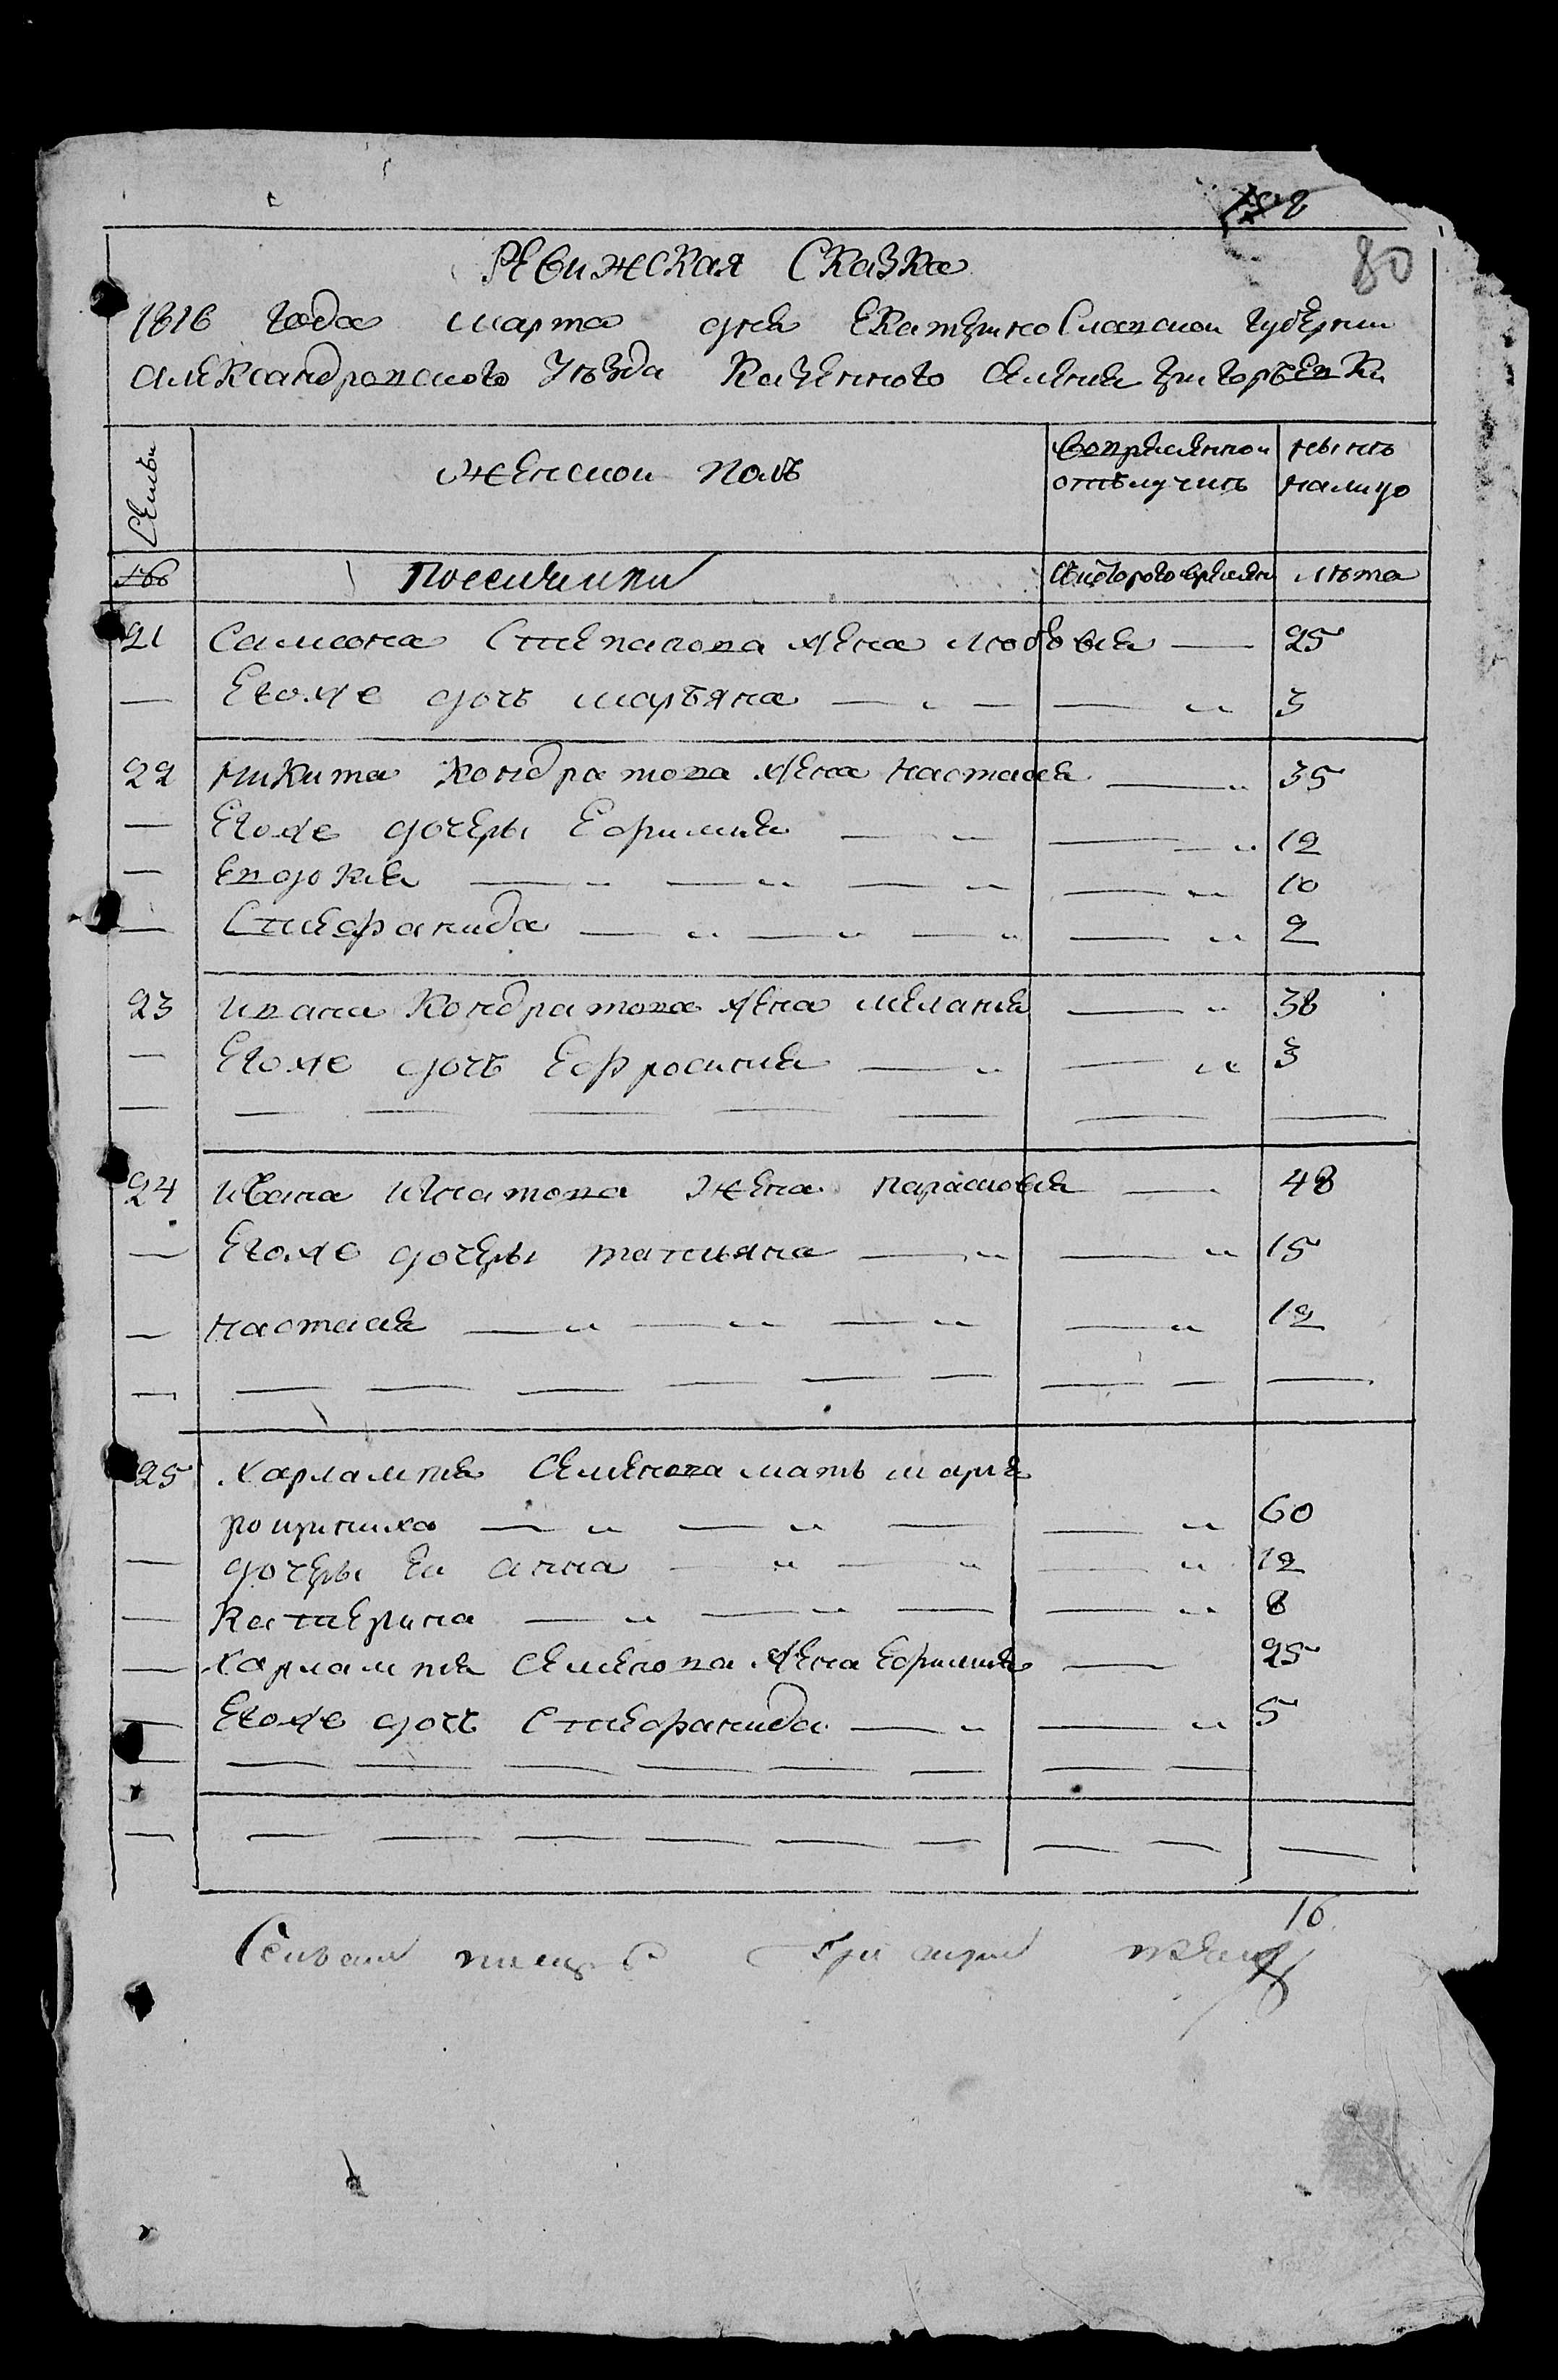 80
Ревижская Сказка
1816 года марта дня Екатериносlавской губернии
Александровского Уѣзда Казенного Селения Григорьевки
Семьи
женской полъ
Вовременной отлучкѣ
нынѣ налицо
Скоторого времяни
лѣта
21 Самсона Степанова жена любовья 25
Егоже дочь марьяна 3
22 Никита Кондратова жена настасея 35
Егоже дочери Ефимия 12
Евдокия 10
Стефанида 2
23 Ивана Кондратова жена мелания 38
Егоже дочь Ефросиния 3
24 Ивана Игнатова жена парасковея 48
Егоже дочери татияна 15
настасея 12
25 Харлампия Семенова мать мария
60
дочери Еи анна 12
Катерина 8
Харлампия Семенова жена Ефимия 25
Егоже дочь Стефанида 5
16